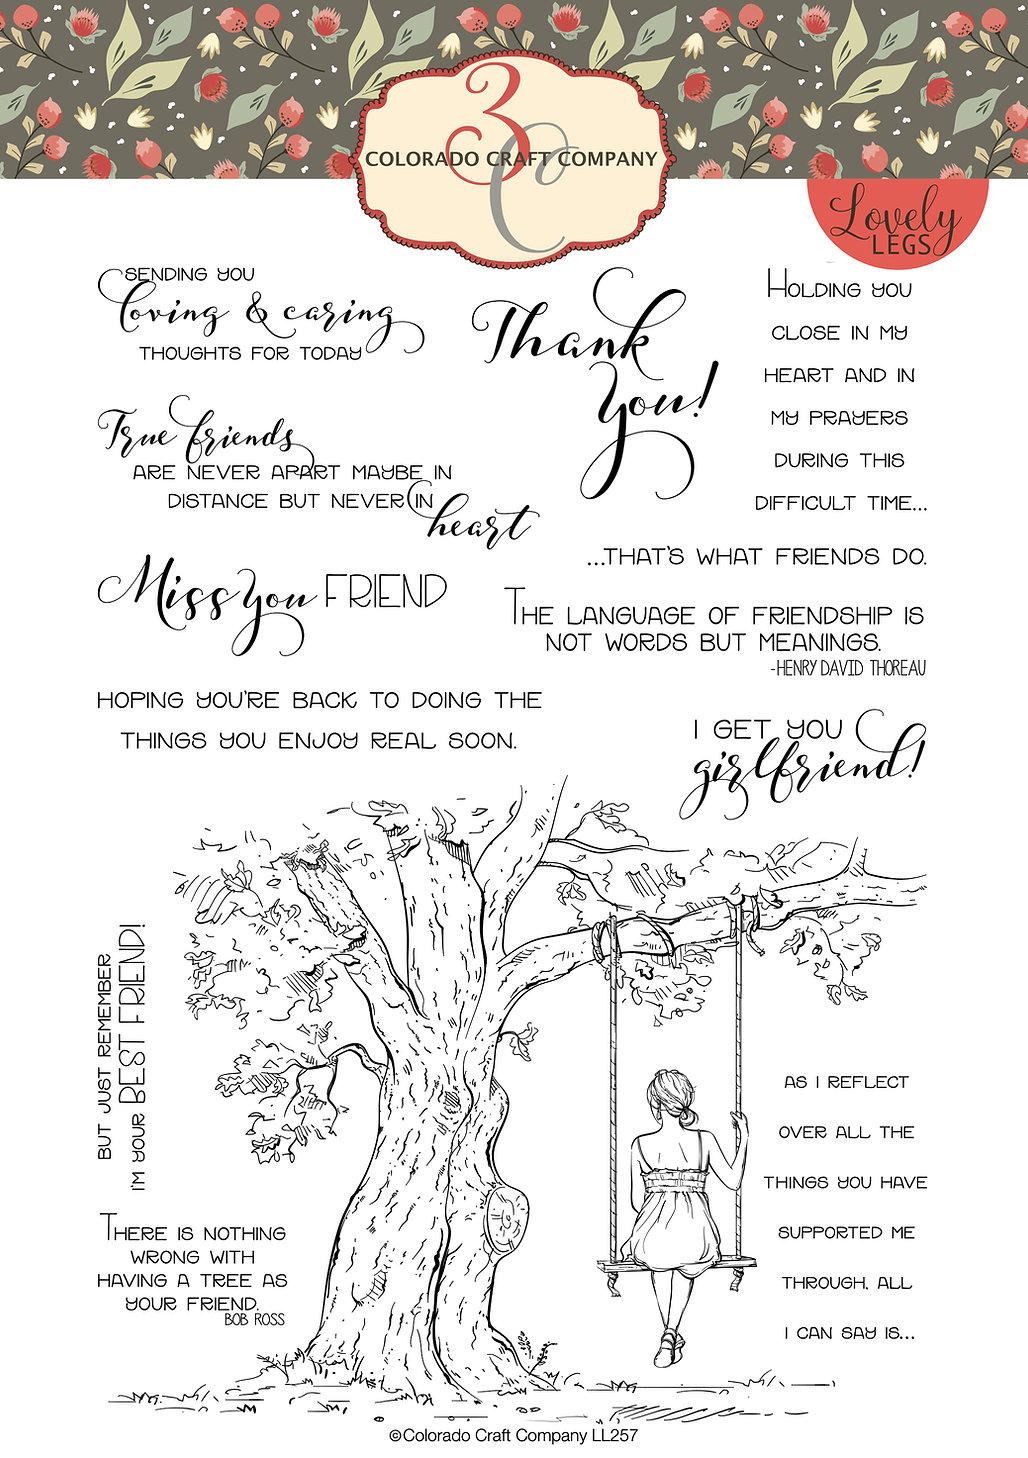 3C
COLORADO CRAFT COMPANY
Lovely
LEGS
SENDING YOU
loving & caring
THOUGHTS FOR TODAY
Thank
You!
HOLDING YOU
CLOSE IN MY
HEART AND IN
MY PRAYERS
DURING THIS
DIFFICULT TIME...
True friends
ARE NEVER APART MAYBE IN
DISTANCE BUT NEVER IN
heart
...THAT'S WHAT FRIENDS DO.
Miss you FRIEND
THE LANGUAGE OF FRIENDSHIP IS
NOT WORDS BUT MEANINGS.
-HENRY DAVID THOREAU
HOPING YOU'RE BACK TO DOING THE
THINGS YOU ENJOY REAL SOON.
I GET YOU
girlfriend!
BUT JUST REMEMBER
I'M YOUR BEST FRIEND!
THERE IS NOTHING
WRONG WITH
HAVING A TREE AS
YOUR FRIEND.
BOB ROSS
AS I REFLECT
OVER ALL THE
THINGS YOU HAVE
SUPPORTED ME
THROUGH, ALL
I CAN SAY IS...
©Colorado Craft Company LL257